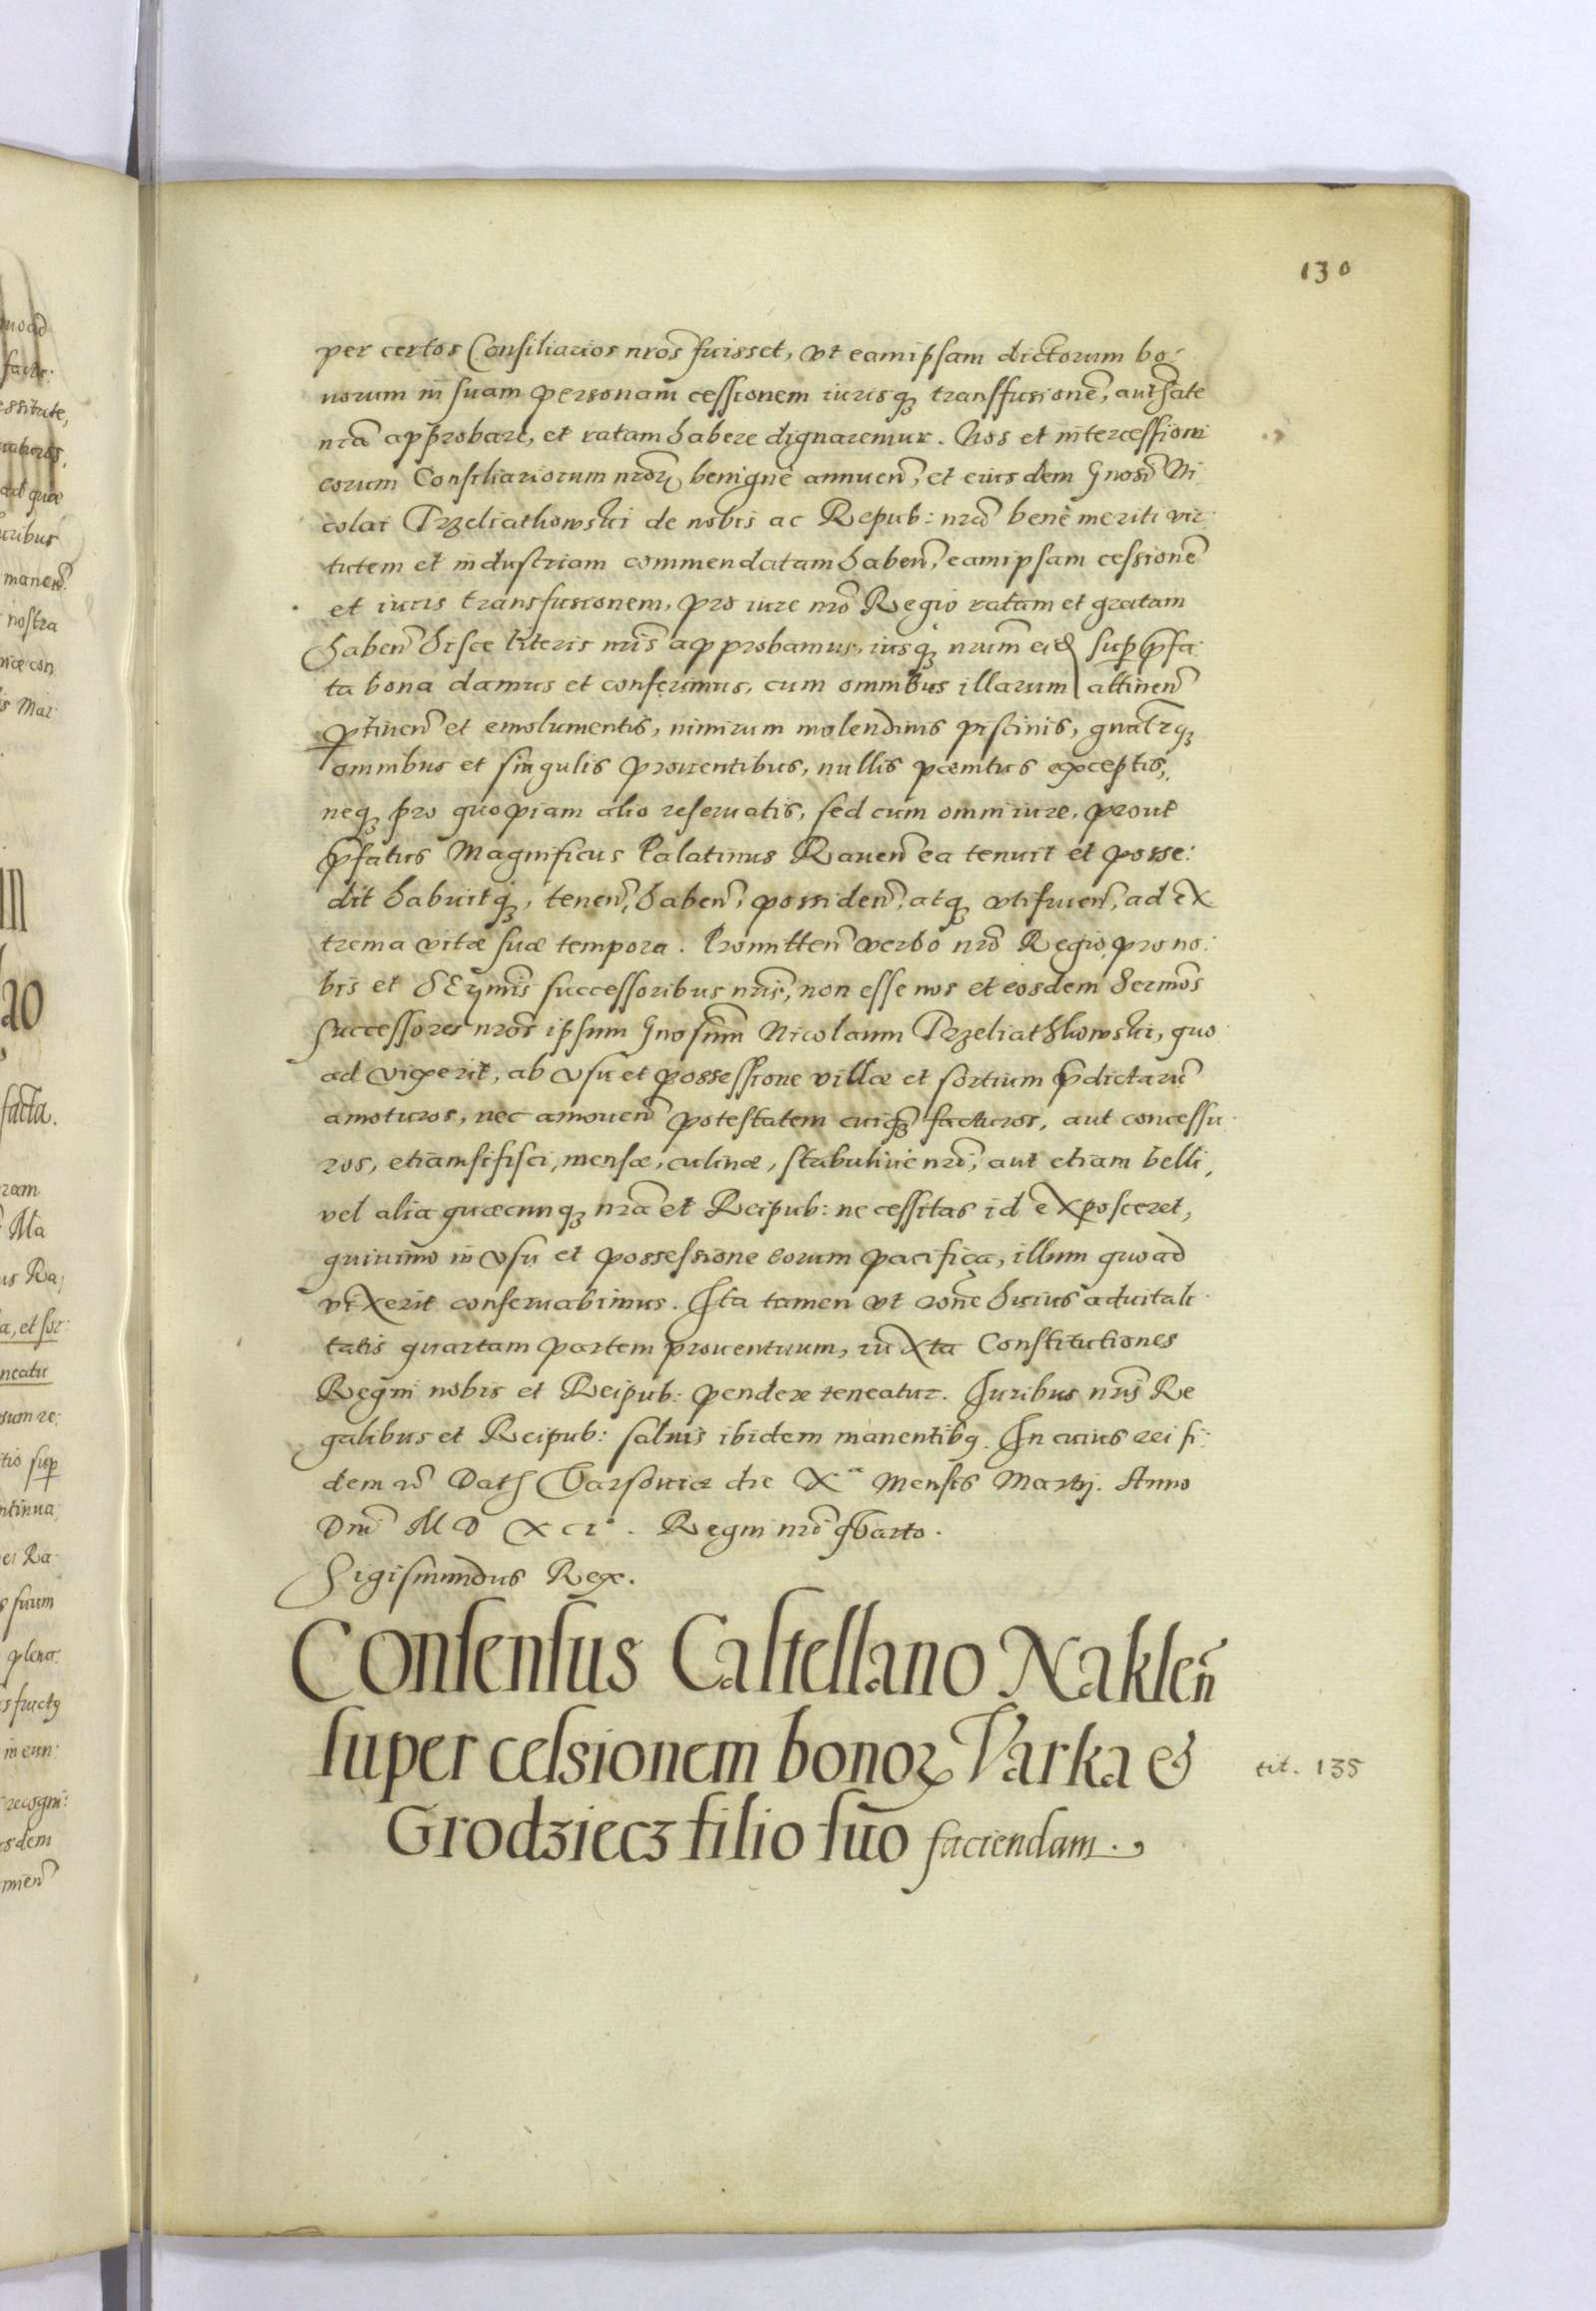 130
per certos Consiliarios nros fuisset, vt eamipsam dictorum bo:
norum in suam personam cessionem iurisq transfusione, authate
nra approbare, et ratam habere dignaremur. Nos et intercessioni
eorum Consiliariorum nror benigne annuen, et eiusdem Gnosi Ni
colai Przeliathowski de nobis ac Repub: nra bene meriti vir
tutem et industriam commendatam haben, eamipsam cessione
et iuris transfusionem, pro iure nro Regio ratam et gratam
haben hisce literis nris approbamus, iusq nrum eid sup pfa
ta bona damus et conferimus, cum omnibus illarum attinen
ptinen et emolumentis, nimirum molendinis piscinis, gnalrq
omnibus et singulis prouentibus, nullis poenitus exceptis,
neq pro quopiam alio reseruatis, sed cum omni iure, prout
pfatus Magnificus Palatinus Rauen ea tenuit et posse:
dit habuitq, tenen, haben, possiden, atq vtifruen, ad ex
trema vitæ suæ tempora. Promitten verbo nro Regio, pro no:
bis et Serymis successoribus nris, non esse nos et eosdem Sermos
successores nros ipsum Gnosum Nicolaum Przeliathkowski, quo
ad vixerit, ab vsu et possessione villæ et sortium pdictaru
amoturos, nec amouen potestatem cuiq facturos, aut concessu
ros, etiamsi fisci, mensæ, culinæ, stabuliue nri, aut etiam belli,
vel alia quæcunq nra et Reipub: necessitas id exposceret,
quinimo in vsu et possessione eorum pacifica, illum quoad
vixerit conseruabimus. Ita tamen vt rone huius aduitali
tatis quartam partem prouentuum, iuxta Constitutiones
Regni nobis et Reipub: pendere teneatur. Iuribus nris Re
galibus et Reipub: saluis ibidem manentibq. In cuius rei fi:
dem Dat Varsouiæ die Xa Mensis Martij. Anno
Dni M D XCIo. Regni nri qvarto.
Sigismundus Rex.
Consensus Castellano Naklen
super cessionem bonor Varka et
Grodziecz filio suo faciendam.
tit. 135